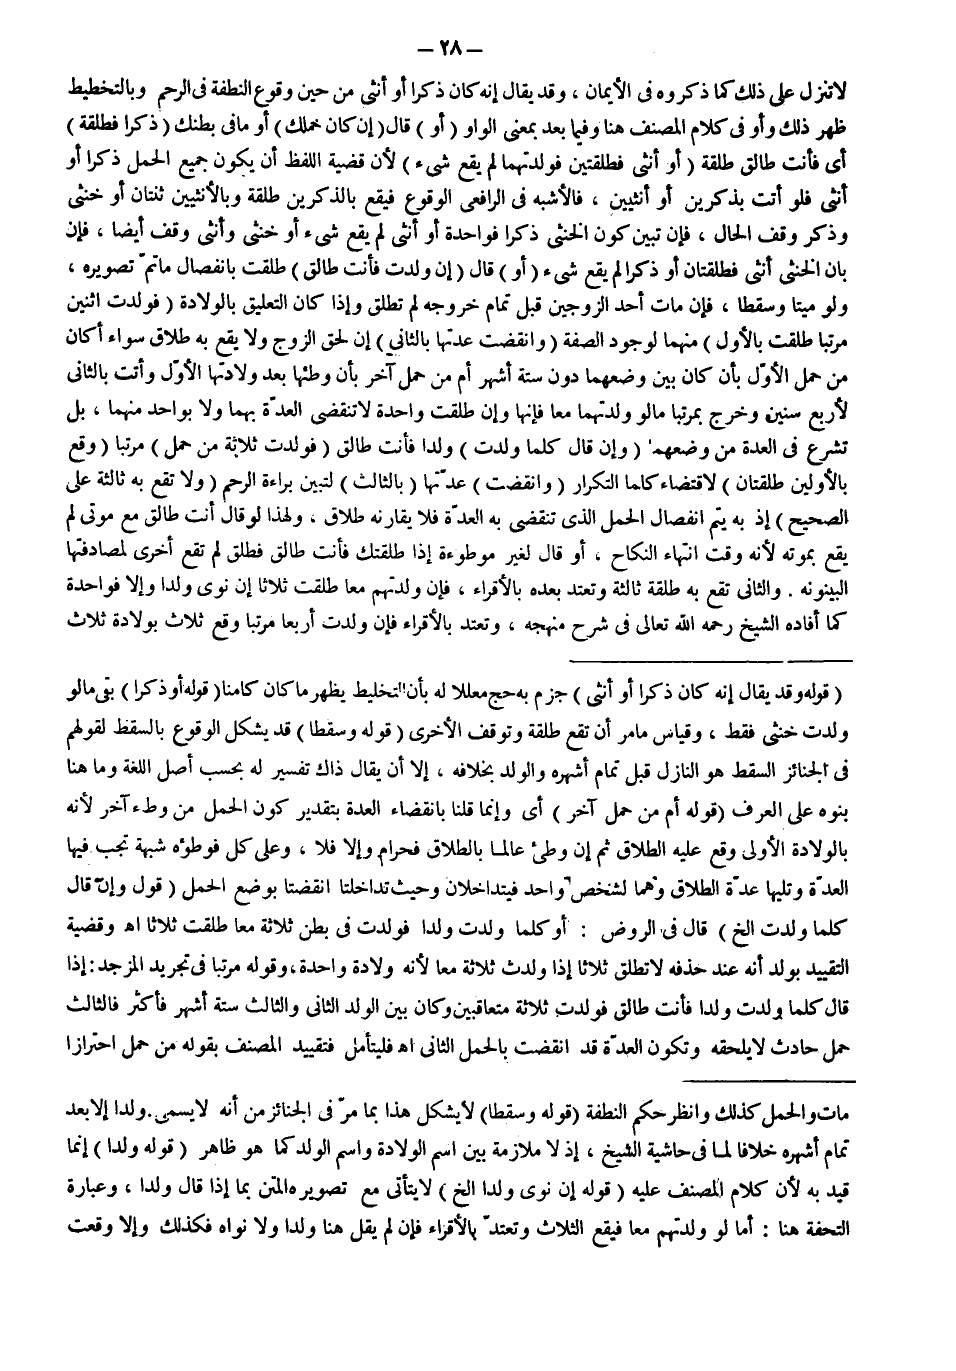 — ٢٨ —
لاتنزل على ذلك كما ذكروه فى الأيمان ، وقد يقال إنه كان ذكرا أو أنثى من حين وقوع النطفة فى الرحم وبالتخطيط
ظهر ذلك وأو فى كلام المصنف هنا وفيما بعد بمعنى الواو ( أو ) قال( إن كان حملك) أو مافى بطنك ( ذكرا فطلقة )
أى فأنت طالق طلقة ( أو أنثى فطلقتين فولدتهما لم يقع شىء ) لأن قضية اللفظ أن يكون جميع الحمل ذكرا أو
أنثى فلو أتت بذكرين أو أنثيين ، فالأشبه فى الرافعى الوقوع فيقع بالذكرين طلقة وبالأنثيين ثنتان أو خنثى
وذكر وقف الحال ، فإن تبين كون الخنثى ذكرا فواحدة أو أنثى لم يقع شىء أو خنثى وأنثى وقف أيضا ، فإن
بان الخنثى أنثى فطلقتان أو ذكرا لم يقع شىء ( أو ) قال ( إن ولدت فأنت طالق ) طلقت بانفصال ماتمّ تصويره ،
ولو ميتا وسقطا ، فإن مات أحد الزوجين قبل تمام خروجه لم تطلق وإذا كان التعليق بالولادة ( فولدت اثنين
مرتبا طلقت بالأول ) منهما لوجود الصفة ( وانقضت عدتها بالثانى ) إن لحق الزوج ولا يقع به طلاق سواء أكان
من حمل الأوّل بأن كان بين وضعهما دون ستة أشهر أم من حمل آخر بأن وطئها بعد ولادتها الأوّل وأتت بالثانى
لأربع سنين وخرج بمرتبا مالو ولدتهما معا فإنها وإن طلقت واحدة لاتنقضى العدّة بهما ولا بواحد منهما ، بل
تشرع فى العدة من وضعهما ( وإن قال كلما ولدت ) ولدا فأنت طالق ( فولدت ثلاثة من حمل ) مرتبا ( وقع
بالأولين طلقتان ) لاقتضاء كلما التكرار ( وانقضت ) عدّتها ( بالثالث ) لتبين براءة الرحم ( ولا تقع به ثالثة على
الصحيح ) إذ به يتم انفصال الحمل الذى تنقضى به العدّة فلا يقارنه طلاق ، ولهذا لوقال أنت طالق مع موتى لم
يقع بموته لأنه وقت انتهاء النكاح ، أو قال لغير موطوءة إذا طلقتك فأنت طالق فطلق لم تقع أخرى لمصادفتها
البينونه . والثانى تقع به طلقة ثالثة وتعتد بعده بالأقراء ، فإن ولدتهم معا طلقت ثلاثا إن نوى ولدا وإلا فواحدة
كما أفاده الشيخ رحمه الله تعالى فى شرح منهجه ، وتعتد بالأقراء فإن ولدت أربعا مرتبا وقع ثلاث بولادة ثلاث
( قوله وقد يقال إنه كان ذكرا أو أنثى ) جزم به حج معللا له بأن التخليط يظهر ماكان كامنا ( قوله أو ذكرا ) بقى مالو
ولدت خنثى فقط ، وقياس مامر أن تقع طلقة وتوقف الأخرى ( قوله وسقطا ) قد يشكل الوقوع بالسقط لقولهم
فى الجنائز السقط هو النازل قبل تمام أشهره والولد بخلافه ، إلا أن يقال ذاك تفسير له بحسب أصل اللغة وما هنا
بنوه على العرف (قوله أم من حمل آخر ) أى وإنما قلنا بانقضاء العدة بتقدير كون الحمل من وطء آخر لأنه
بالولادة الأولى وقع عليه الطلاق ثم إن وطئ عالما بالطلاق فحرام وإلا فلا ، وعلى كل فوطؤه شبهة تجب فيها
العدّة وتليها عدّة الطلاق وهما لشخص واحد فيتداخلان وحيث تداخلتا انقضتا بوضع الحمل ( قول وإن قال
كلما ولدت الخ ) قال فى الروض : أو كلما ولدت ولدا فولدت فى بطن ثلاثة معا طلقت ثلاثا اهـ وقضية
التقييد بولد أنه عند حذفه لاتطلق ثلاثا إذا ولدت ثلاثة معا لأنه ولادة واحدة ، وقوله مرتبا فى تجريد المزجد : إذا
قال كلما ولدت ولدا فأنت طالق فولدت ثلاثة متعاقبين وكان بين الولد الثانى والثالث ستة أشهر فأكثر فالثالث
حمل حادث لايلحقه وتكون العدّة قد انقضت بالحمل الثانى اهـ فليتأمل فتقييد المصنف بقوله من حمل احترازا
مات والحمل كذلك وانظر حكم النطفة (قوله وسقطا) لايشكل هذا بما مرّ فى الجنائز من أنه لايسمى ولدا إلا بعد
تمام أشهره خلافا لما فى حاشية الشيخ ، إذ لا ملازمة بين اسم الولادة واسم الولد كما هو ظاهر ( قوله ولدا ) إنما
قيد به لأن كلام المصنف عليه ( قوله إن نوى ولدا الخ ) لايتأتى مع تصويره المتن بما إذا قال ولدا ، وعبارة
التحفة هنا : أما لو ولدتهم معا فيقع الثلاث وتعتدّ بالأقراء فإن لم يقل هنا ولدا ولا نواه فكذلك وإلا وقعت